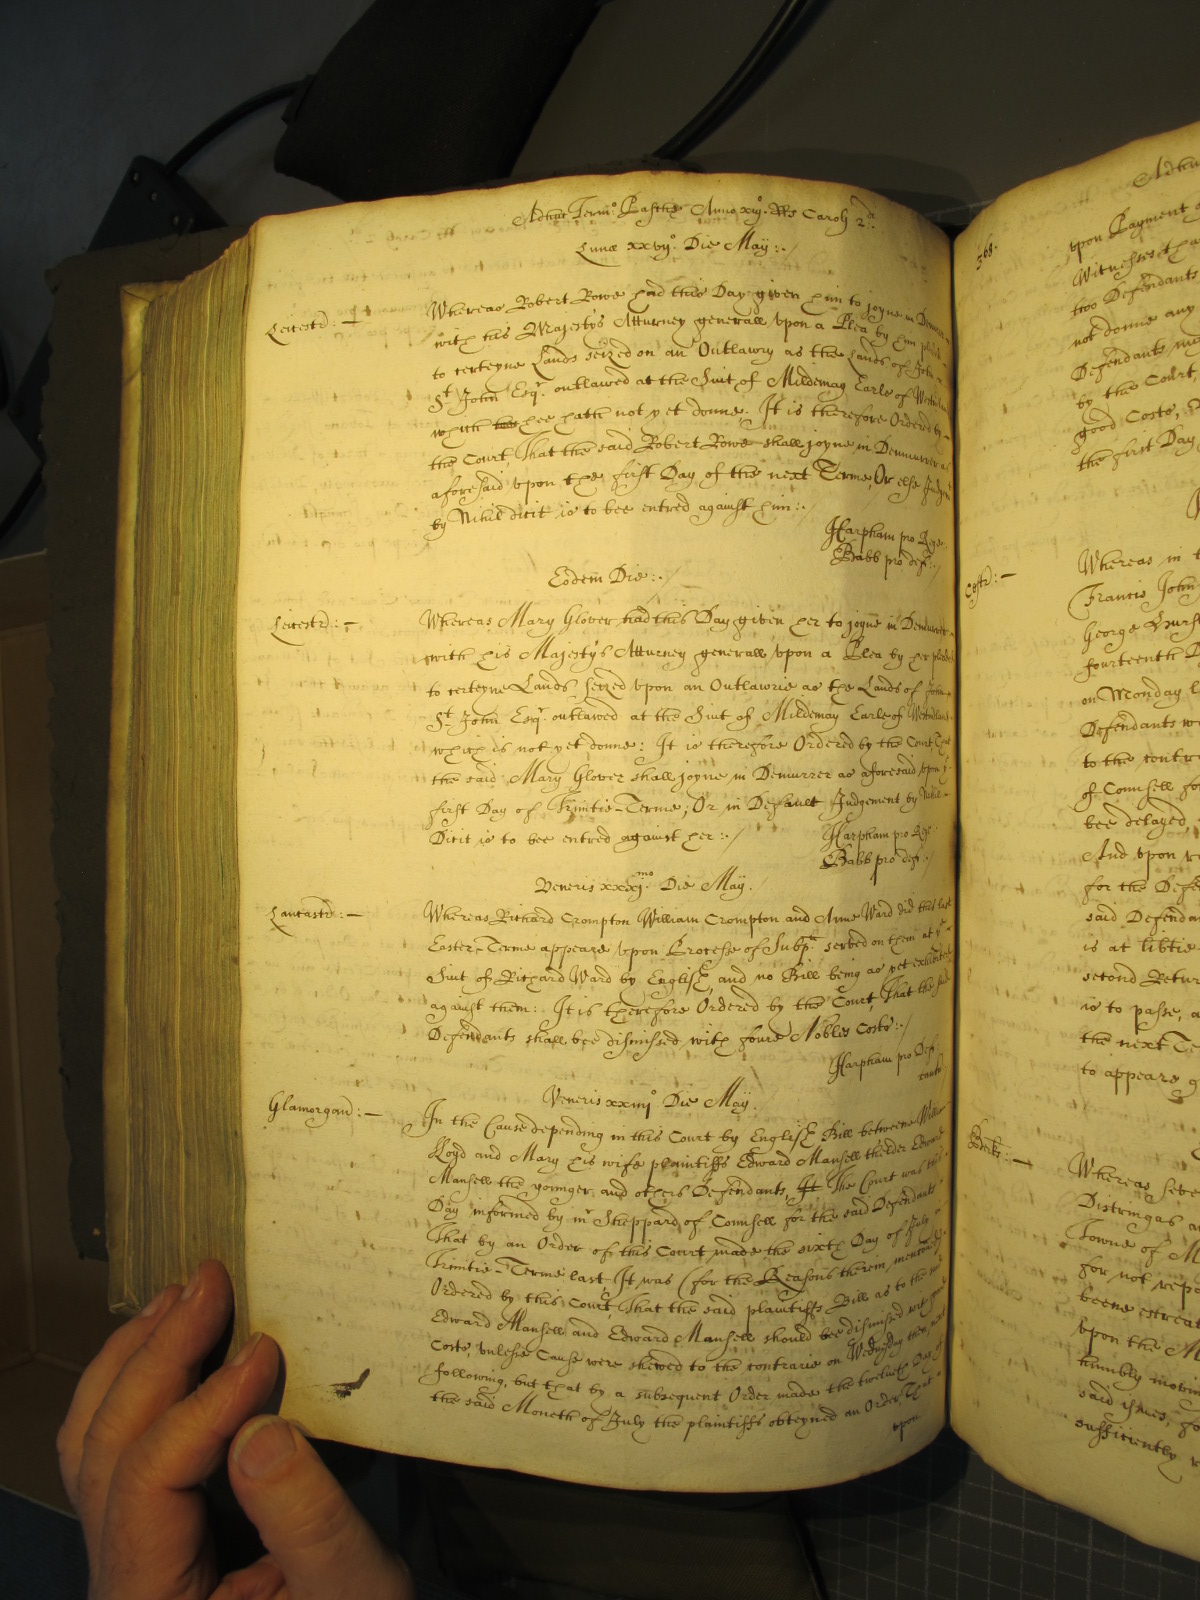 Adhuc Term:o Pasche Anno xiijo. RRs Caroli 2di:.
Lunæ xxvijo. Die May:./
Leicestr:—
Whereas Robert Rowe had this Day given him to joyne in Demurrer
with his Majestys Atturney generall upon a Plea by him pleded
to certeyne Lands seized on an Outlawry as the Lands of John
St. John Esqr. outlawed at the Suit of Mildemay Earle of Westmland
which hee hath not yet donne; It is therefore Ordered by
the Court, That the said Robert Rowe shall joyne in Demurrer as
aforesaid upon the first Day of the next Terme, Or else Judgmt
by Nihil dicit is to bee entred against him:./
Harpham pro Rege.
Babb pro def:./
Eodem Die:./
Leicestr:—
Whereas Mary Glover had this Day given her to joyne in Demurrer
with his Majestys Atturney generall upon a Plea by her pleded
to certeyne Lands seized upon an Outlawrie as the Lands of John
St. John Esqr. outlawed at the Suit of Mildemay Earle of Westmland
which is not yet donne: It is therefore Ordered by the Court That
the said Mary Glover shall joyne in Demurrer as aforesaid upon ye
first Day of Trinitie-Terme; Or in Default Judgement by Nihil
Dicit is to bee entred against her:./
Harpham pro Rege.
Babb pro def:./
Veneris xxxjmo. Die May./
Lancastr:—
Whereas Richard Crompton William Crompton and Anne Ward did this last
Easter-Terme appeare upon Processe of Subpa. served on them at ye
Suit of Richard Ward by English, and no Bill being as yet exhibited
against them: It is therefore Ordered by the Court, That the said
Defendants shall bee dismissed with foure Nobles Costs:./
Harpham pro Defend
entibus
Veneris xxiiijo Die May.
Glamorgan:—
In the Cause depending in this Court by English Bill betweene William
Lloyd and Mary his wife plaintiffs Edward Mansell thelder Edward
Mansell the younger, and others Defendants, It The Court was this
Day informed by mr Sheppard of Counsell for the said Defendants
That by an Order of this Court made the sixth Day of July
Trinitie-Terme last It was (for the Reasons therein mentioned)
Ordered by this Court, That the said plaintiffs Bill as to the said
Edward Mansell and Edward Mansell should bee dismissed with good
Costs, unlesse Cause were shewed to the contrarie on Wednsday then next
following, but that by a subsequent Order made the twelveth Day of
the said Moneth of July the plaintiffs obteyned an Order, That
upon
368.
Adhuc
upon Payment
Witnesses
two Defendants
not donne any
Defendants
by the Court,
good Costs,
the first Day
Whereas in
Francis John
George
fourteenth
on Monday
Defendants
to the
of Counsell for
bee delayed,
And upon
for the
said
is at libtie
second
is to passe,
the next
to appeare
Berks:—
Whereas
Distringas
Towne of
for not
beene
upon the
humbly
said
sufficiently